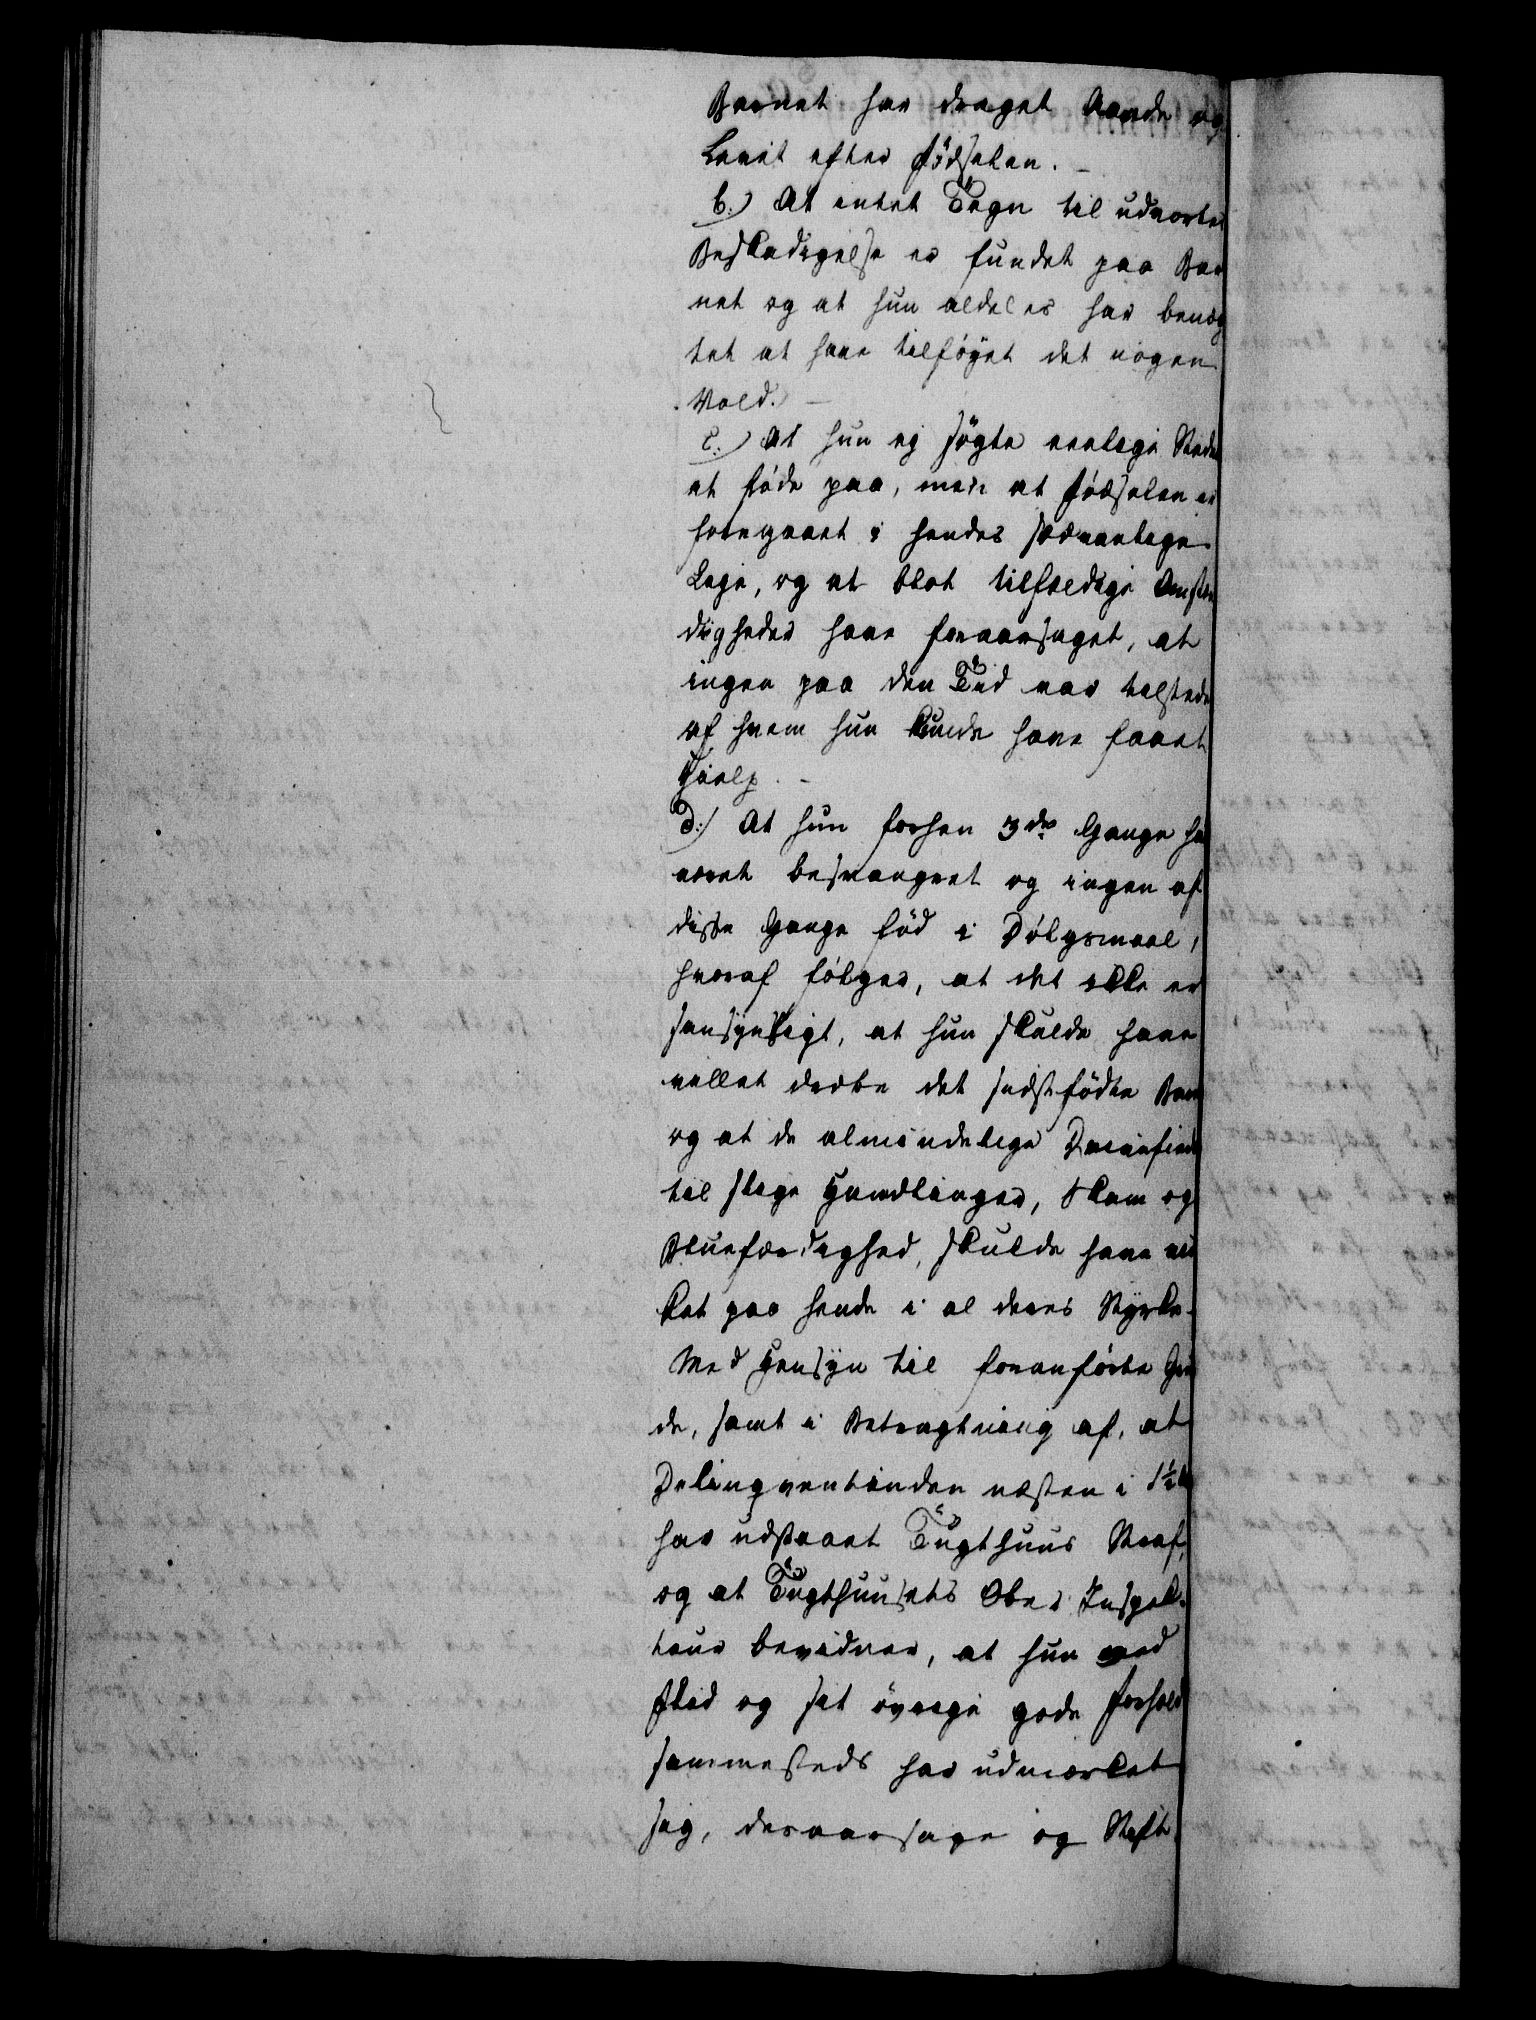 Barnet har draget Aande og
Levet efter Fødselen. –
b.) At intet Tegn til udvortes
Beskadigelse er fundet paa Bar
net og at hun aldeles har benæg
tet at have tilføyet det nogen
Vold. –
c.) At hun ej søgte eenlige Steder
at føde paa, men at Fødselen er
foregaaet i hendes sædvanlige
Leje, og at blot tilfældige Omstæn
digheder have foraarsaget, at
ingen paa den Tid var tilstede
af hvem hun kunde have faaet
Hielp. –
d.) At hun forhen 3de Gange har
været besvangret og ingen af
disse Gange fød i Dølgsmaal,
hvoraf følger, at det ikke er
sansynligt, at hun skulde have
villet dræbe det sidst fødte Barn
og at de almindelige Drivefiedre
til slige Handlinger, Skam og
Bluefærdighed, skulde have vir
ket paa hende i al deres Styrke.
Med Hensyn til foranførte Grun
de, samt i Betragtning af, at
Delinqventinden næsten i 1½
har udstaaet Tugthuus Straf,
og at Tugthuusets Ober Inspek-
teur bevidner, at hun ved
Flid og sit øvrige gode Forhold
sammesteds har udmærket
sig, deraarsage og Stift